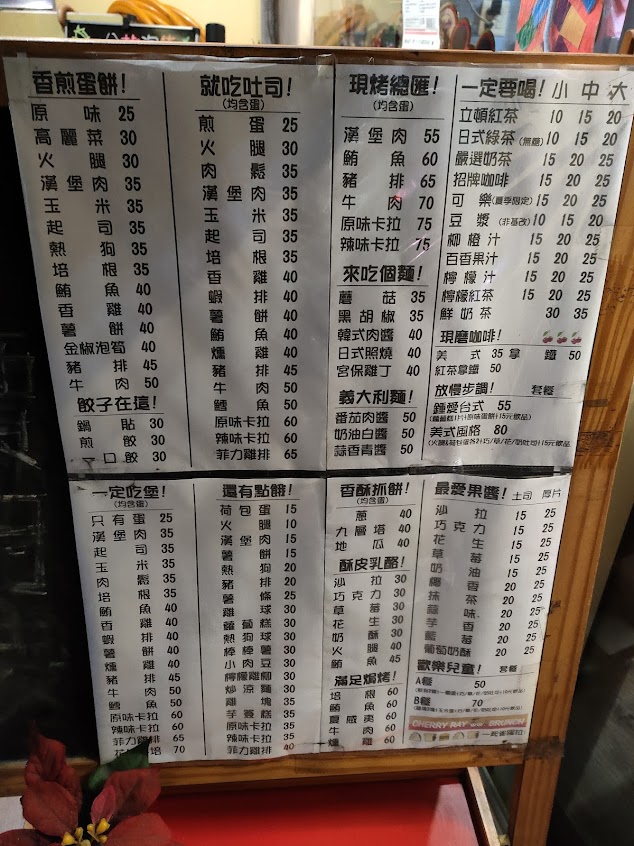 香煎蛋餅!
原味 25
高麗菜 30
火腿 30
漢堡肉 35
玉米 35
起司 35
熱狗 35
培根 35
鮪魚 40
香雞 40
薯餅 40
金椒泡筍 40
豬排 45
牛肉 50
餃子在這!
鍋貼 30
煎餃 30
一口餃 30
就吃吐司!
(均含蛋)
煎蛋 25
火腿 30
肉鬆 35
漢堡肉 35
玉米 35
起司 35
培根 35
香雞 40
蝦排 40
薯餅 40
鮪魚 40
燻雞 40
豬排 45
牛肉 50
鱈魚 50
原味卡拉 60
辣味卡拉 60
菲力雞排 65
現烤總匯!
(均含蛋)
漢堡肉 55
鮪魚 60
豬排 65
牛肉 70
原味卡拉 75
辣味卡拉 75
來吃個麵!
蘑菇 35
黑胡椒 35
韓式肉醬 40
日式照燒 40
宮保雞丁 40
義大利麵!
番茄肉醬 50
奶油白醬 50
蒜香青醬 50
一定要喝! 小 中 大
立頓紅茶 10 15 20
日式綠茶(無糖) 10 15 20
嚴選奶茶 15 20 25
招牌咖啡 15 20 25
可樂(夏季限定) 15 20 25
豆漿(非基改) 10 15 20
柳橙汁 15 20 25
百香果汁 15 20 25
檸檬汁 15 20 25
檸檬紅茶 15 20 25
鮮奶茶 30 35
現磨咖啡!
美式 35 拿鐵 50
紅茶拿鐵 50
放慢步調! 套餐
鍾愛台式 55
美式風格 80
一定吃堡!
(均含蛋)
只有蛋 25
漢堡肉 35
起司 35
玉米 35
肉鬆 35
培根 35
鮪魚 40
香雞 40
蝦排 40
薯餅 40
燻雞 40
豬排 45
牛肉 50
鱈魚 50
原味卡拉 60
辣味卡拉 60
菲力雞排 65
培 70
還有點餓!
荷包蛋 15
火腿 10
漢堡肉 15
薯餅 15
熱狗 20
豬排 20
薯條 25
雞球 30
蘿蔔糕 30
熱狗球 30
棒棒薯 30
小肉豆 30
檸檬雞柳 30
炒涼麵 30
雞塊 35
芋簽糕 35
原味卡拉 35
辣味卡拉 35
菲力雞排 40
香酥抓餅!
(均含蛋)
蔥 40
九層塔 40
地瓜 40
酥皮乳酪!
沙拉 30
巧克力 30
草莓 30
花生 30
奶酥 30
火腿 40
鮪魚 45
滿足焗烤!
培根 60
鮪魚 60
夏威夷 60
牛肉 60
燻雞 60
最愛果醬! 土司 厚片
沙拉 15 25
巧克力 15 25
花生 15 25
草莓 15 25
奶油 15 25
椰香 20 25
抹茶 20 25
蒜味 20 25
芋香 20 25
藍莓 20 25
葡萄奶酥 20 25
歡樂兒童! 套餐
A餐 50
B餐 70
CHERRY RAY BRUNCH
一起雀躍拉